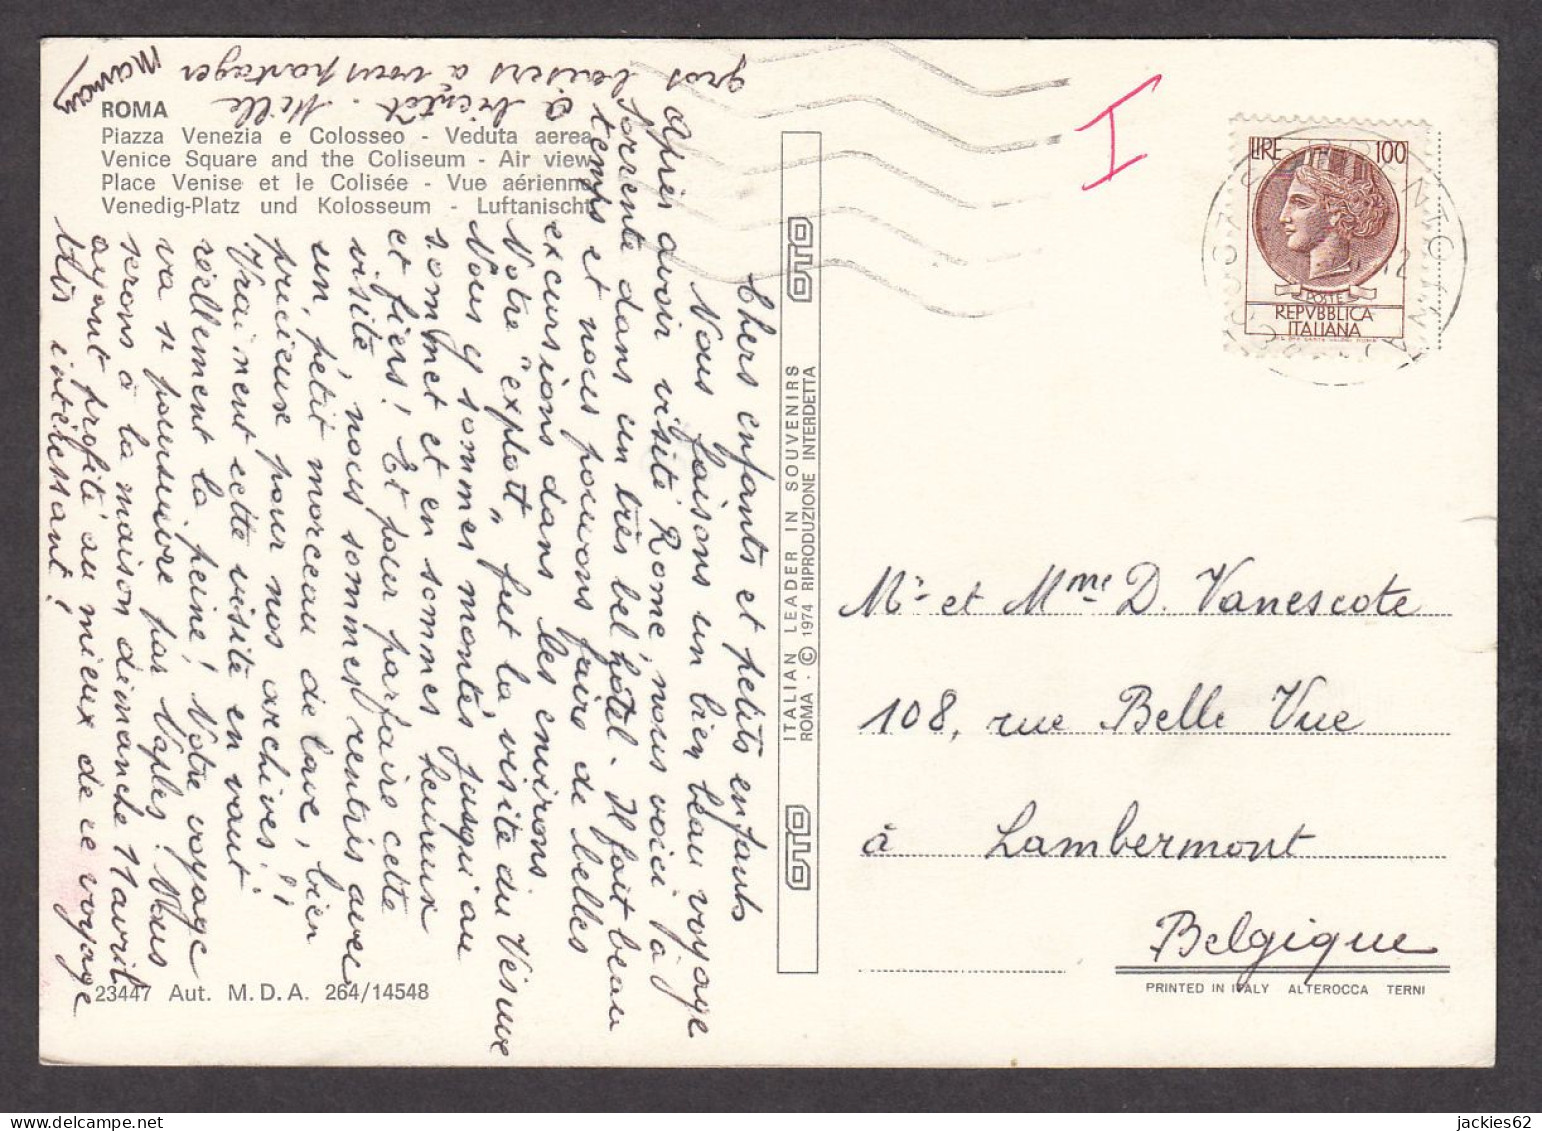 ROMA
Piazza Venezia e Colosseo - Veduta aerea
Venice Square and the Coliseum - Air view
Place Venise et le Colisée - Vue aérienne
Venedig-Platz und Kolosseum - Luftanischt
Chers enfants et petits enfants
Nous faisons un bien beau voyage
Après avoir visité Rome, nous voici à
Sorrente dans un très bel hôtel. Il fait beau
temps et nous pouvons faire de belles
excursions dans les environs.
Notre "exploit" fut la visite du Vésuve
Nous y sommes montés jusqu'au
sommet et en sommes heureux
et fiers! Et pour parfaire cette
visite, nous sommes rentrés avec
un petit morceau de lave, bien
précieux pour nos archives!!
Vraiment cette visite en vaut
réellement la peine! Notre voyage
va se poursuivre par Naples. Nous
serons à la maison dimanche 11 avril
ayant profité au mieux de ce voyage
très intéressant!
à bientôt. Mille
gros baisers à vous partager
Maman
23447 Aut. M.D.A. 264/14548
OTO
ITALIAN LEADER IN SOUVENIRS
ROMA - © 1974 RIPRODUZIONE INTERDETTA
OTO
I
LIRE 100
POSTE
REPVBBLICA
ITALIANA
Mr et Mme D. Vanescote
108, rue Belle Vue
à Lambermont
Belgique
PRINTED IN ITALY ALTEROCCA TERNI
jackies62